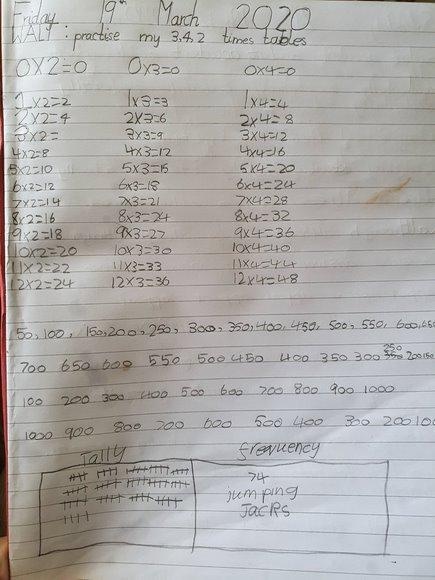 Friday 19th March 2020
WALT: practise my 3,4,2 times tables
0x2=0 0x3=0 0x4=0
1x2=2 1x3=3 1x4=4
2x2=4 2x3=6 2x4=8
3x2= 3x3=9 3x4=12
4x2=8 4x3=12 4x4=16
5x2=10 5x3=15 5x4=20
6x2=12 6x3=18 6x4=24
7x2=14 7x3=21 7x4=28
8x2=16 8x3=24 8x4=32
9x2=18 9x3=27 9x4=36
10x2=20 10x3=30 10x4=40
11x2=22 11x3=33 11x4=44
12x2=24 12x3=36 12x4=48
50, 100, 150, 200, 250, 300, 350, 400, 450, 500, 550, 600, 650
700 650 600 550 500 450 400 350 300 250 200 150
100 200 300 400 500 600 700 800 900 1000
1000 900 800 700 600 500 400 300 200 100
Tally frequency
74
jumping
Jacks